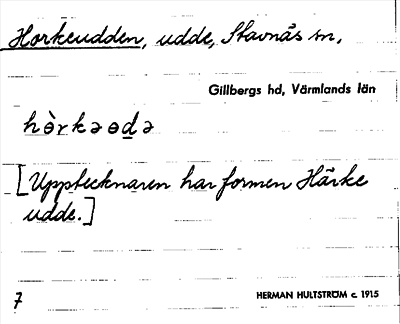 Horkeudden, udde, Stavnäs sn.
Gillbergs hd, Värmlands län
hɵ̀rkəɵḏə
[Upptecknaren har formen Härke
udde.]
7
HERMAN HULTSTRÖM c. 1915